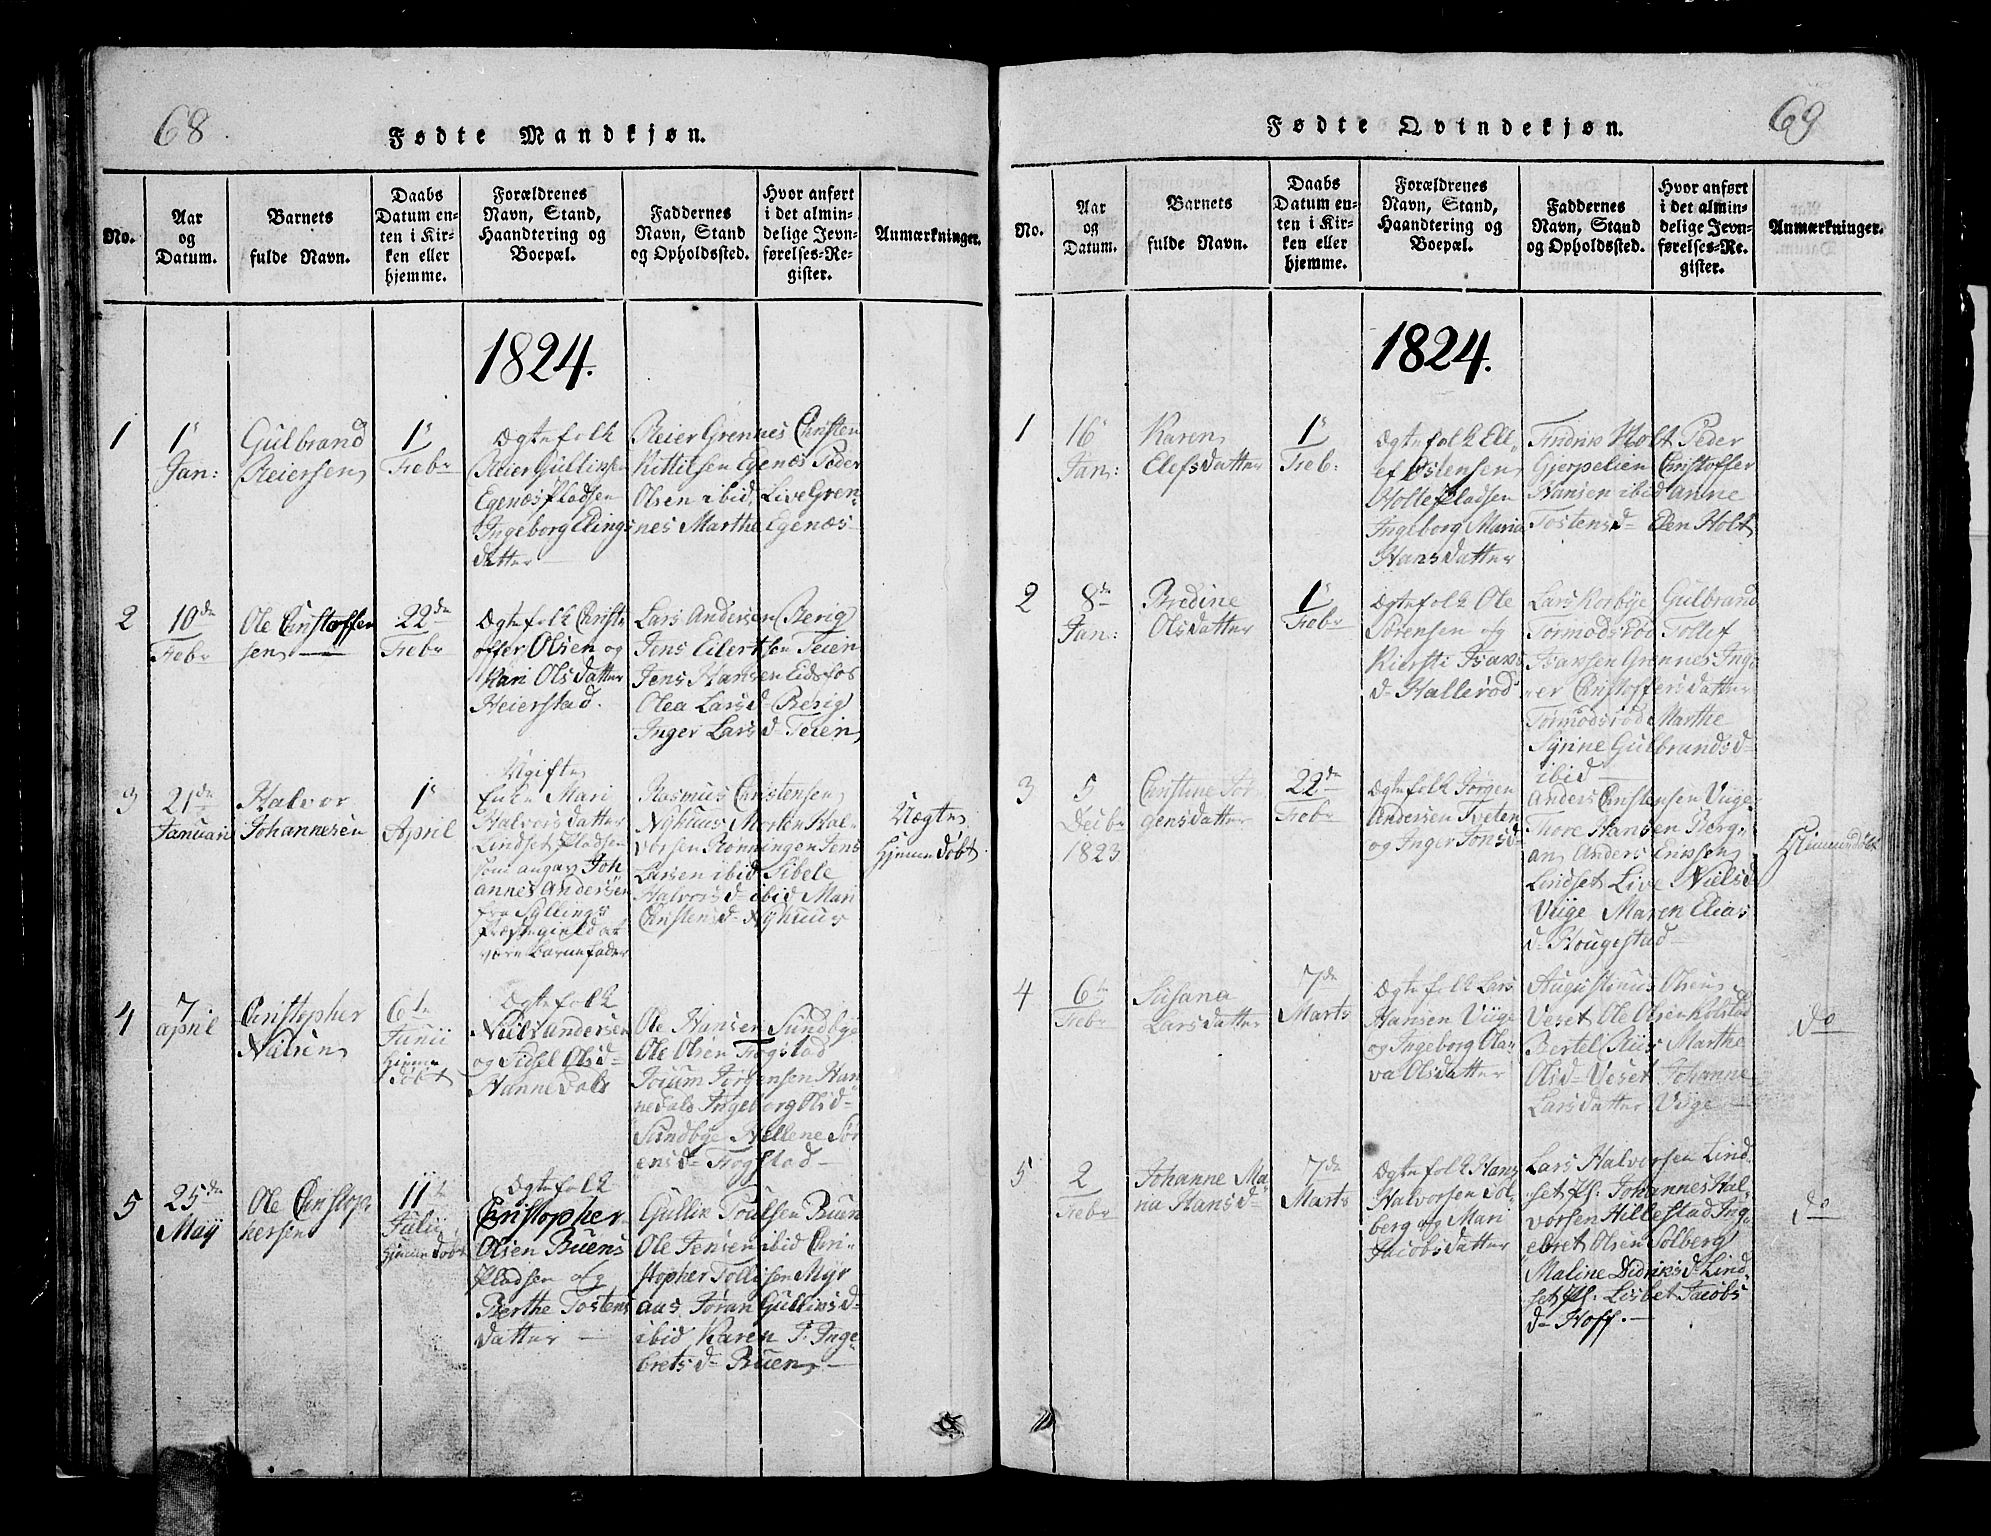 68
Fødte Mandkjøn.
No.
Aar
og
Datum.
Barnets
fulde Navn.
Daabs
Datum en-
ten i Kir-
ken eller
hjemme.
Forældrenes
Navn, Stand,
Haandtering og
Boepæl.
Faddernes
Navn, Stand
og Opholdssted.
Hvor anført
i det almin-
delige Jevn-
førelses-Re-
gister.
Anmærkninger.
1824.
1
1s
Jan:
Gulbrand
Reiersen
1s
Febr
Ægtefolk
Reier Gullinsen
Egenæs Pladsen
Ingeborg Elings
datter
Reier Grennes Christen
Kittilsen Egenæs Peder
Olsen ibid, Live Gren
nes Marthe Egenæs
2
10de
Febr
Ole Christoffer
sen
22de
Febr
Ægtefolk Christ-
offer Olsen og
Kari Olsdatter
Heierstad.
Lars Andersen Berig
Jens Eilertsen Teien
Jens Hansen Eidsfos
Olea Larsd Berig
Inger Larsd Teien
3
21de
Januari
Halvor
Johannesen
1s
April
Ugifte
Mari
Halvorsdatter
Lindset Pladsen
som angav Joh
annes Andersen
fra Syllings
Præstegield at
være barnefader
Rasmus Christensen
Nyhuus Morten Hal-
vorsen Rønningen Jens
Larsen ibid Sibele
Halvorsd ibid Mari
Christensd Nyhuus
Uægte
Hjemmedøbt
4
7
April
Christopher
Nilsen
6te
Junii
Hjemme
døbt
Ægtefolk
Niels Andersen
og Sidsel Olsd
Hannedals
Ole Hansen Sundbye
Ole Olsen Fogstad
Joium Jørgensen Han
nedals Ingeborg Olsd
Sundbye Hellene Sør
ensd Fogstad
5
25de
May
Ole Christop-
hersen
11te
Julii
Hjemmedøbt
Ægtefolk
Christopher
Olsen Buens
Pladsen og
Berthe Tostens
datter
Gullik Poulsen Buen
Ole Jensen ibid Chri-
stopher Tollefsen Myr
aas Jøran Gulliksd
ibid Karen P. Inge-
bretsd Buen
69
Fødte Qvindekjøn.
No.
Aar
og
Datum.
Barnets
fulde Navn.
Daabs
Datum en-
ten i Kir-
ken eller
hjemme.
Forældrenes
Navn, Stand,
Haandtering og
Boepæl.
Faddernes
Navn, Stand
og Opholdssted.
Hvor anført
i det almin-
delige Jevn-
førelses-Re-
gister.
Anmærkninger.
1824.
1
16
Jan:
Karen
Elefsdatter
1s
Feb:
Ægtefolk Ell-
ef Østensen
Holtepladsen
Ingeborg Maria
Hansdatter
Fredrik Holt Peder
Gjerpelien Christoffer
Hansen ibid Anne
Tostensd Elen Holt
2
8de
Jan:
Bredine
Olsdatter
1s
Febr
Ægtefolk Ole
Sørensen og
Kiersti Isaks
d Hallerød
Lars Korbye Gulbrand
Tormodsrød Tollef
Isansen Grennes Ing
er Christoffersdatter
Tormodsrød Marthe
Syrine Gulbrandsd
ibid
3
5
Decbr
1823
Christine Jør
gensdatter
22de
Febr
Ægtefolk Jørgen
Andersen Tveten
og Inger Jonsd
Anders Christensen Viige
Thore Hansen Berg-
an Anders Erissen
Lindset Live Nielsd
Viige Maren Elias
d Hougestad
Hjemmedøbt
4
6te
Febr
Susana
Larsdatter
7de
Marts
Ægtefolk Lars
Hansen Viige
og Ingeborg Ola-
va Olsdatter
Augustinus Olsen
Veset Ole Olsen Kolstad
Bertel Riis Marthe
Olsd Veset Johanne
Larsdatter Viige
do
5
2
Febr
Johanne Ma
na Hansd
7de
Marts
Ægtefolk Hans
Halvorsen Sol-
berg og Mari
Jacobsdatter
Lars Halvorsen Lind-
set Pl. Johannes Hal-
vorsen Hillestad Ing-
ebret Olsen Solberg
Maline Didriksd Lind
set Pl. Lisbet Jacobs
d Hoff.
do